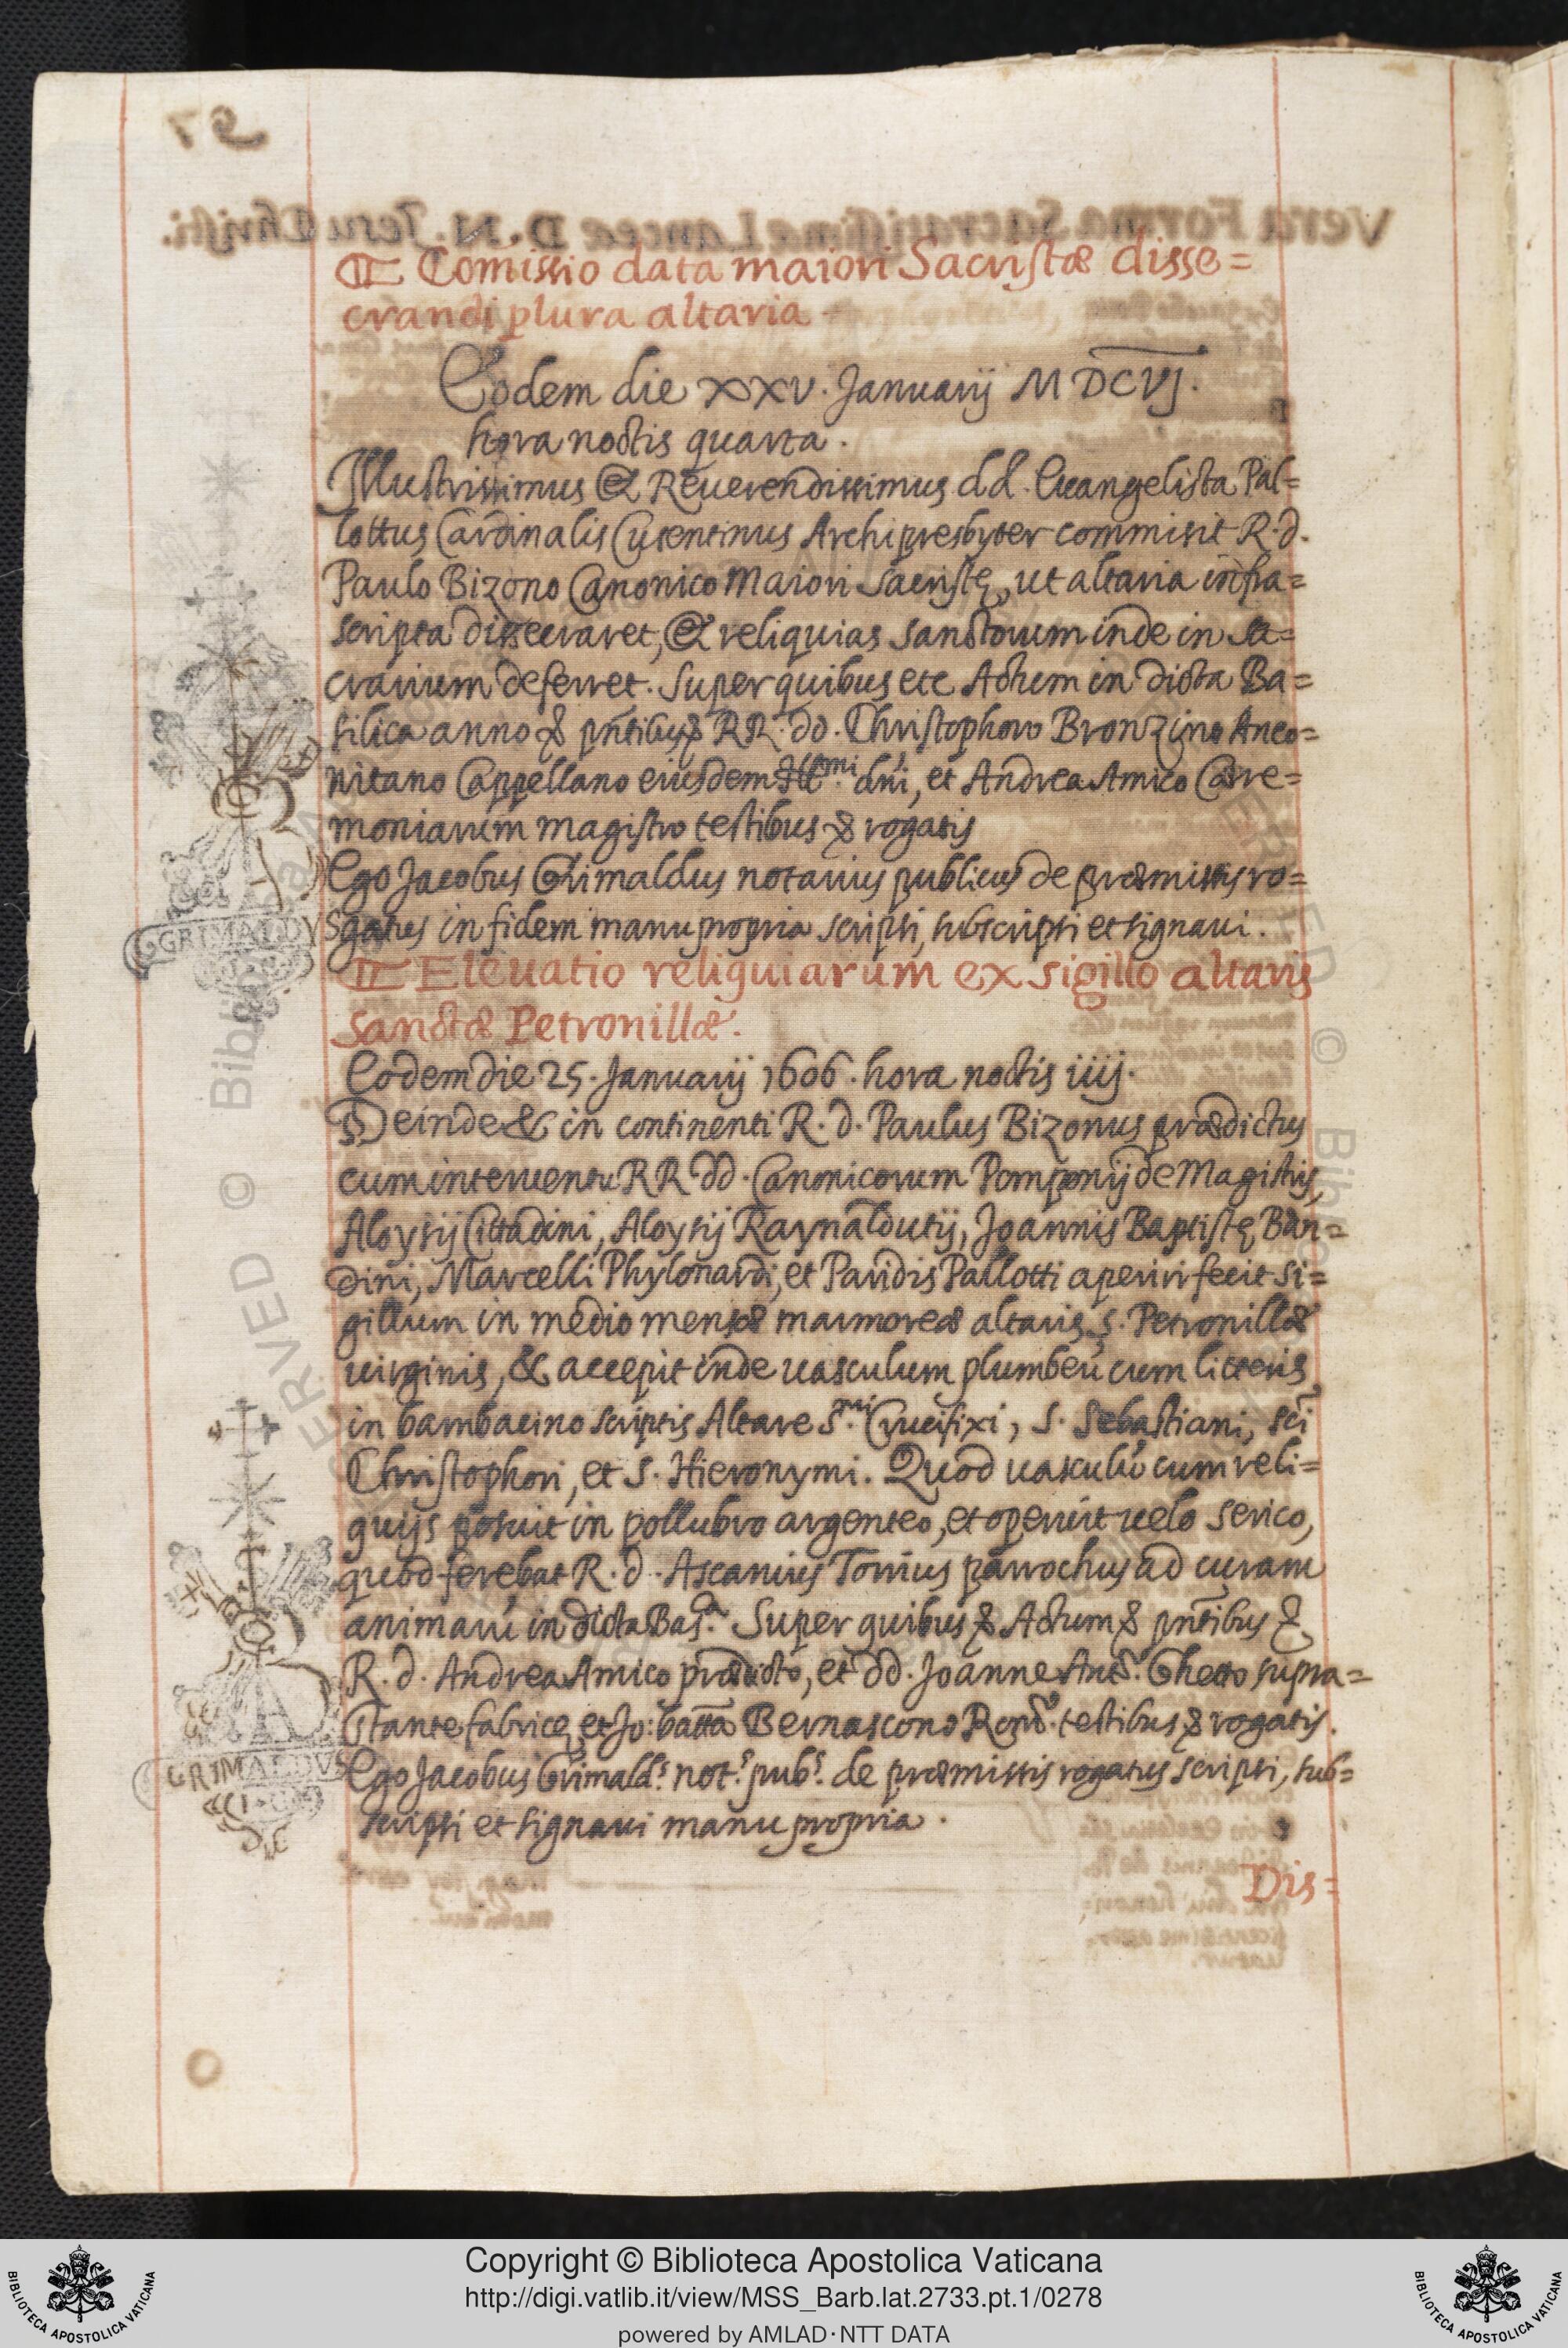 ¶ Comissio data maiori Sacristæ disse=
crandi plura altaria
Eodem die XXV. Januarij MDCVJ.
hora noctis quarta.
Jllustrissimus & Reuerendissimus dd. Euangelista Pal=
lottus Cardinalis Cusentinus Archipresbyter commisit R. d.
Paulo Bizono Canonico Maiori Sacristę, ut altaria infra=
scripta dissecraret, & reliquias sanctorum inde in sa=
crarium deferret. Super quibus etc Actum in dicta Ba=
silica anno & pn̄tibus & RR. dd. Christophoro Bronzino Anco=
nitano Cappellano eiusdem Jll.mi dn̄i, et Andrea Amico Cære=
moniarum magistro testibus & rogatis
Ego Jacobus Grimaldus notarius publicus de præmissis ro=
gatus in fidem manu propria scripsi, subscripsi et signaui.
GRIMALDVS
¶ Eleuatio reliquiarum ex sigillo altaris
sanctæ Petronillæ.
Eodem die 25. Januarij 1606. hora noctis iiij.
Deinde & in continenti R. d. Paulus Bizonus prædictus
cum interuentu RR dd. Canonicorum Pomponij de Magistris,
Aloysij Cittadini, Aloysij Raynaldutij, Joannis Baptistę Ban=
dini, Marcelli Phylonardi, et Paridis Pallotti aperiri fecit si=
gillum in medio mensæ marmoreæ altaris s. Petronillæ
uirginis, & accepit inde uasculum plumbeū cum litteris
in bambacino scriptis Altare S.mi Crucifixi, S. Sebastiani, sc̄i
Christophori, et S. Hieronymi. Quod uasculū cum reli=
quijs posuit in pollubro argenteo, et operuit uelo serico,
quod ferebat R. d. Ascanius Tonius parrochus ad curam
animarū in dicta Bas.a Super quibus & Actum & pn̄tibus &
R. d. Andrea Amico prædicto, et dd. Joanne Ant.o Ghetto supra=
stante fabricę, et Jo: batta Bernascono Rom.o testibus & rogatis.
Ego Jacobus Grimald.s not.s pub.s de præmissis rogatus scripsi, sub=
scripsi et signaui manu propria.
GRIMALDVS
Dis=
Copyright © Biblioteca Apostolica Vaticana
http://digi.vatlib.it/view/MSS_Barb.lat.2733.pt.1/0278
powered by AMLAD·NTT DATA
BIBLIOTECA APOSTOLICA VATICANA
BIBLIOTECA APOSTOLICA VATICANA